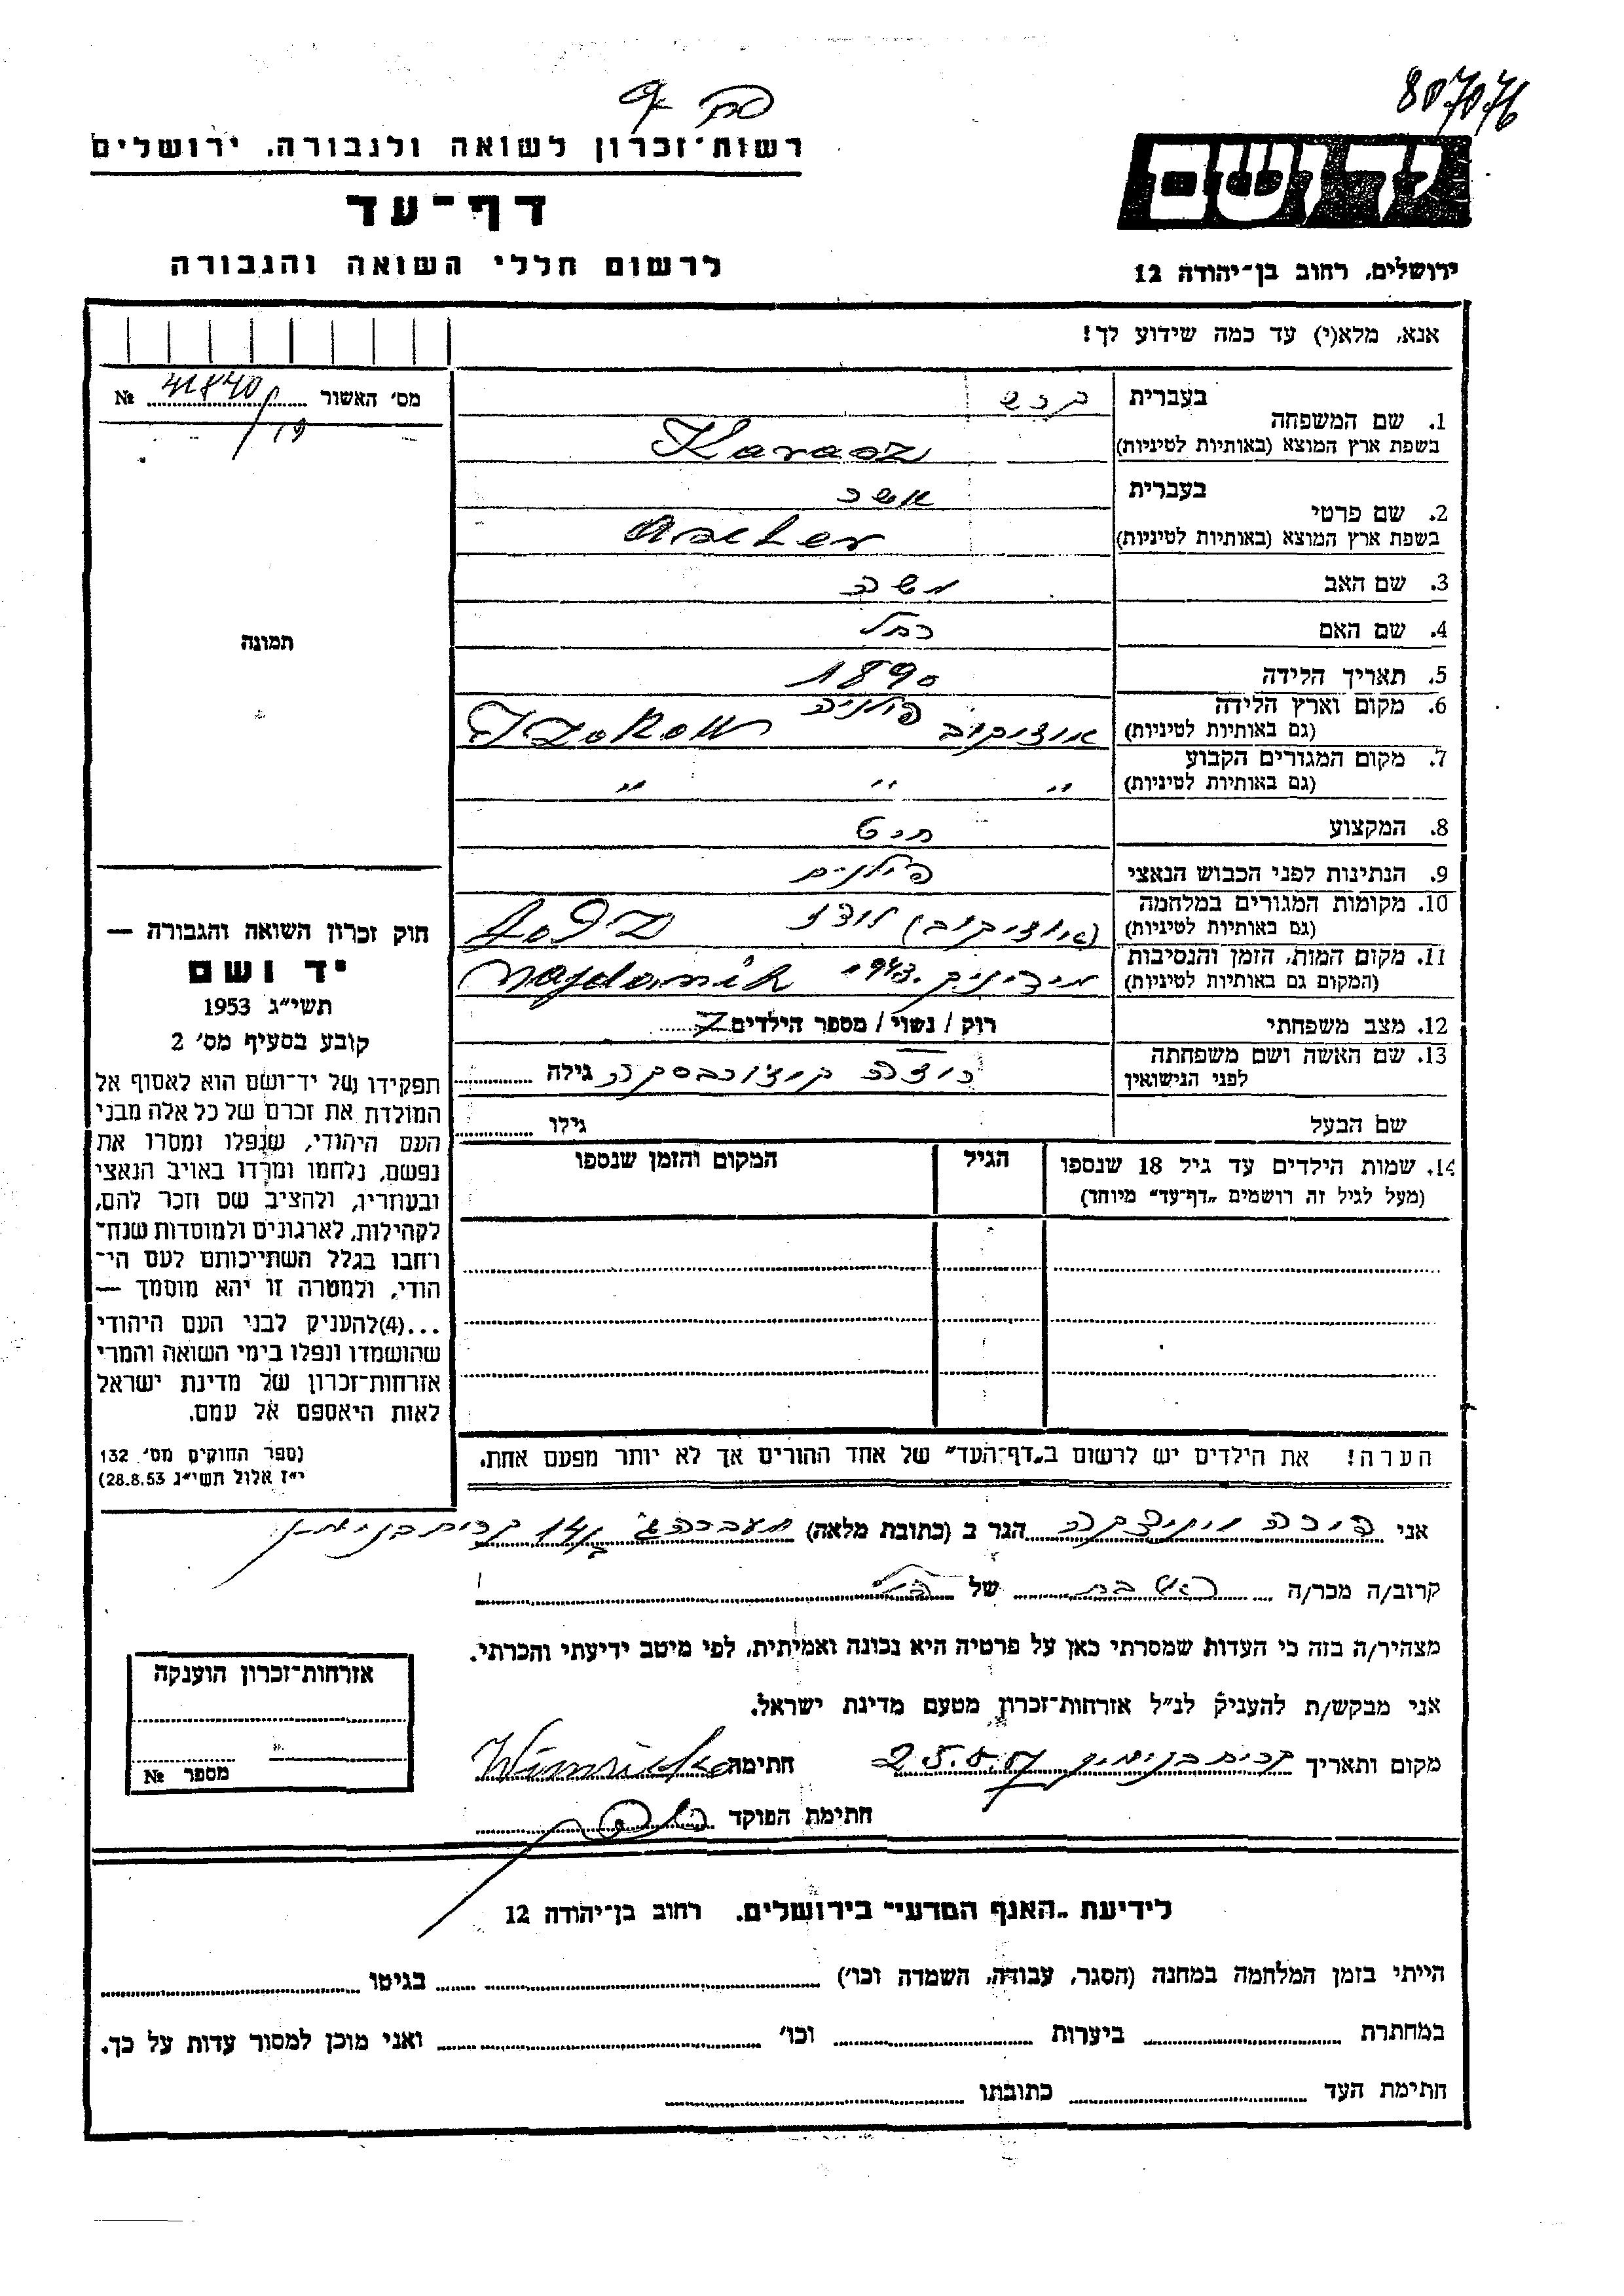 807076
רשות־זכרון לשואה ולגבורה, ירושלים
דף־עד
לרשום חללי השואה והגבורה
יד ושם
ירושלים, רחוב בן־יהודה 12
אנא, מלא(י) עד כמה שידוע לך!
מס׳ האשור 41840 №
19
תמונה
חוק זכרון השואה והגבורה —
יד ושם
תשי״ג 1953
קובע בסעיף מס׳ 2
תפקידו של יד־ושם הוא לאסוף אל
המולדת את זכרם של כל אלה מבני
העם היהודי, שנפלו ומסרו את
נפשם, נלחמו ומרדו באויב הנאצי
ובעוזריו, ולהציב שם וזכר להם,
לקהילות, לארגונים ולמוסדות שנח־
רחבו בגלל השתייכותם לעם הי־
הודי, ולמטרה זו יהא מוסמך —
...(4)להעניק לבני העם היהודי
שהושמדו ונפלו בימי השואה והמרי
אזרחות־זכרון של מדינת ישראל
לאות היאספם אל עמם.
(ספר החוקים מס׳ 132
י״ז אלול תשי״ג 28.8.53)
בעברית קרש
1. שם המשפחה
בשפת ארץ המוצא (באותיות לטיניות) Karasz
בעברית אשר
2. שם פרטי
בשפת ארץ המוצא (באותיות לטיניות) Ascher
3. שם האב משה
4. שם האם רחל
5. תאריך הלידה 1890
6. מקום וארץ הלידה פולניה
(גם באותיות לטיניות) אוז׳קוב Ozokow
7. מקום המגורים הקבוע
(גם באותיות לטיניות) " " "
8. המקצוע חיט
9. הנתינות לפני הכבוש הנאצי פולנים
10. מקומות המגורים במלחמה
(גם באותיות לטיניות) (אוז׳קוב) לודז׳ Łodz
11. מקום המות, הזמן והנסיבות
(המקום גם באותיות לטיניות) מידינק 1943. Majdanek
12. מצב משפחתי רוק / נשוי / מספר הילדים 7
13. שם האשה ושם משפחתה
לפני הנישואין גילה
שם הבעל גילו
14. שמות הילדים עד גיל 18 שנספו הגיל המקום והזמן שנספו
(מעל לגיל זה רושמים „דף־עד״ מיוחד)
הערה! את הילדים יש לרשום ב„דף־העד״ של אחד ההורים אך לא יותר מפעם אחת.
אני הגר ב (כתובת מלאה) מעברה ג׳ 14 קרית בנימין
קרוב/ה מכר/ה הבת של הנ״ל
מצהיר/ה בזה כי העדות שמסרתי כאן על פרטיה היא נכונה ואמיתית, לפי מיטב ידיעתי והכרתי.
אני מבקש/ת להעניק לנ״ל אזרחות־זכרון מטעם מדינת ישראל.
מקום ותאריך קרית בנימין 25.5.57 חתימה
חתימת הפוקד
אזרחות־זכרון הוענקה
מספר №
לידיעת „האגף המדעי״ בירושלים, רחוב בן־יהודה 12
הייתי בזמן המלחמה במחנה (הסגר, עבודה, השמדה וכו׳) בגיטו
במחתרת ביערות וכו׳ ואני מוכן למסור עדות על כך.
חתימת העד כתובתו